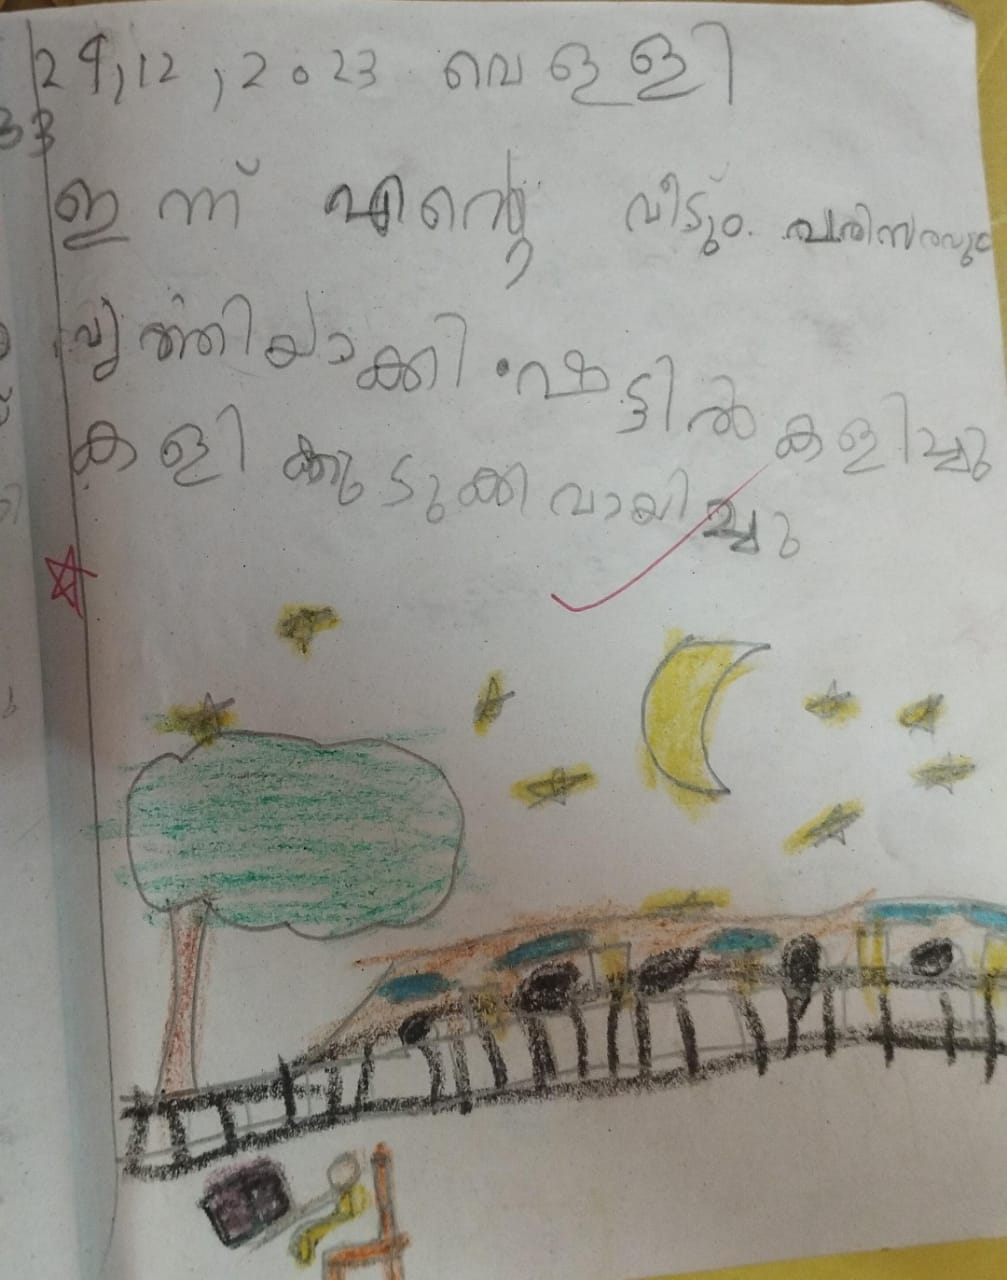 29,12,2023 വെള്ളി
33
ഇന്ന് എന്റെ വീടും പരിസരവും
വൃത്തിയാക്കി. കളിച്ചു
കളി ക്കുടുക്ക വായിച്ചു